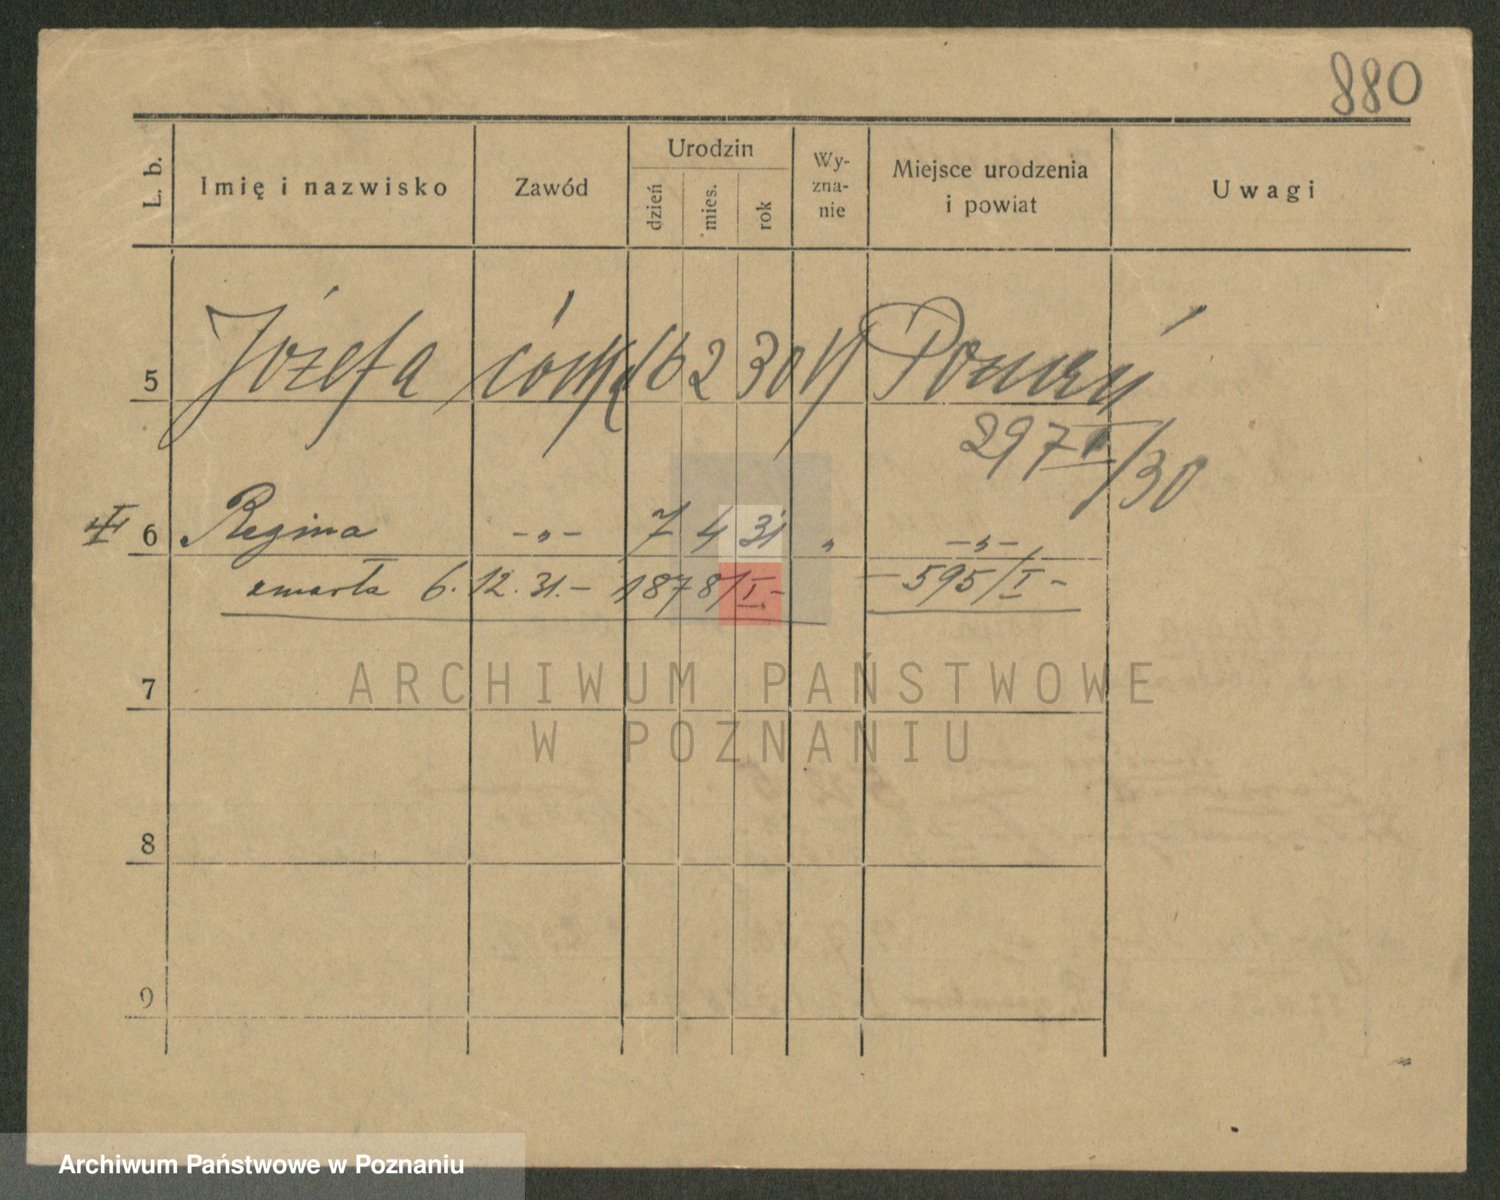 880
L. b. Imię i nazwisko Zawód Urodzin dzień mies. rok Wyznanie Miejsce urodzenia i powiat Uwagi
5 Józefa córka 16 2 30 Poznań
297 /30
6 Regina -„- 7 4 31 „ -„-
zmarła 6.12.31.- 1878/I.- -595/I-
7
8
9
ARCHIWUM PAŃSTWOWE
W POZNANIU
Archiwum Państwowe w Poznaniu